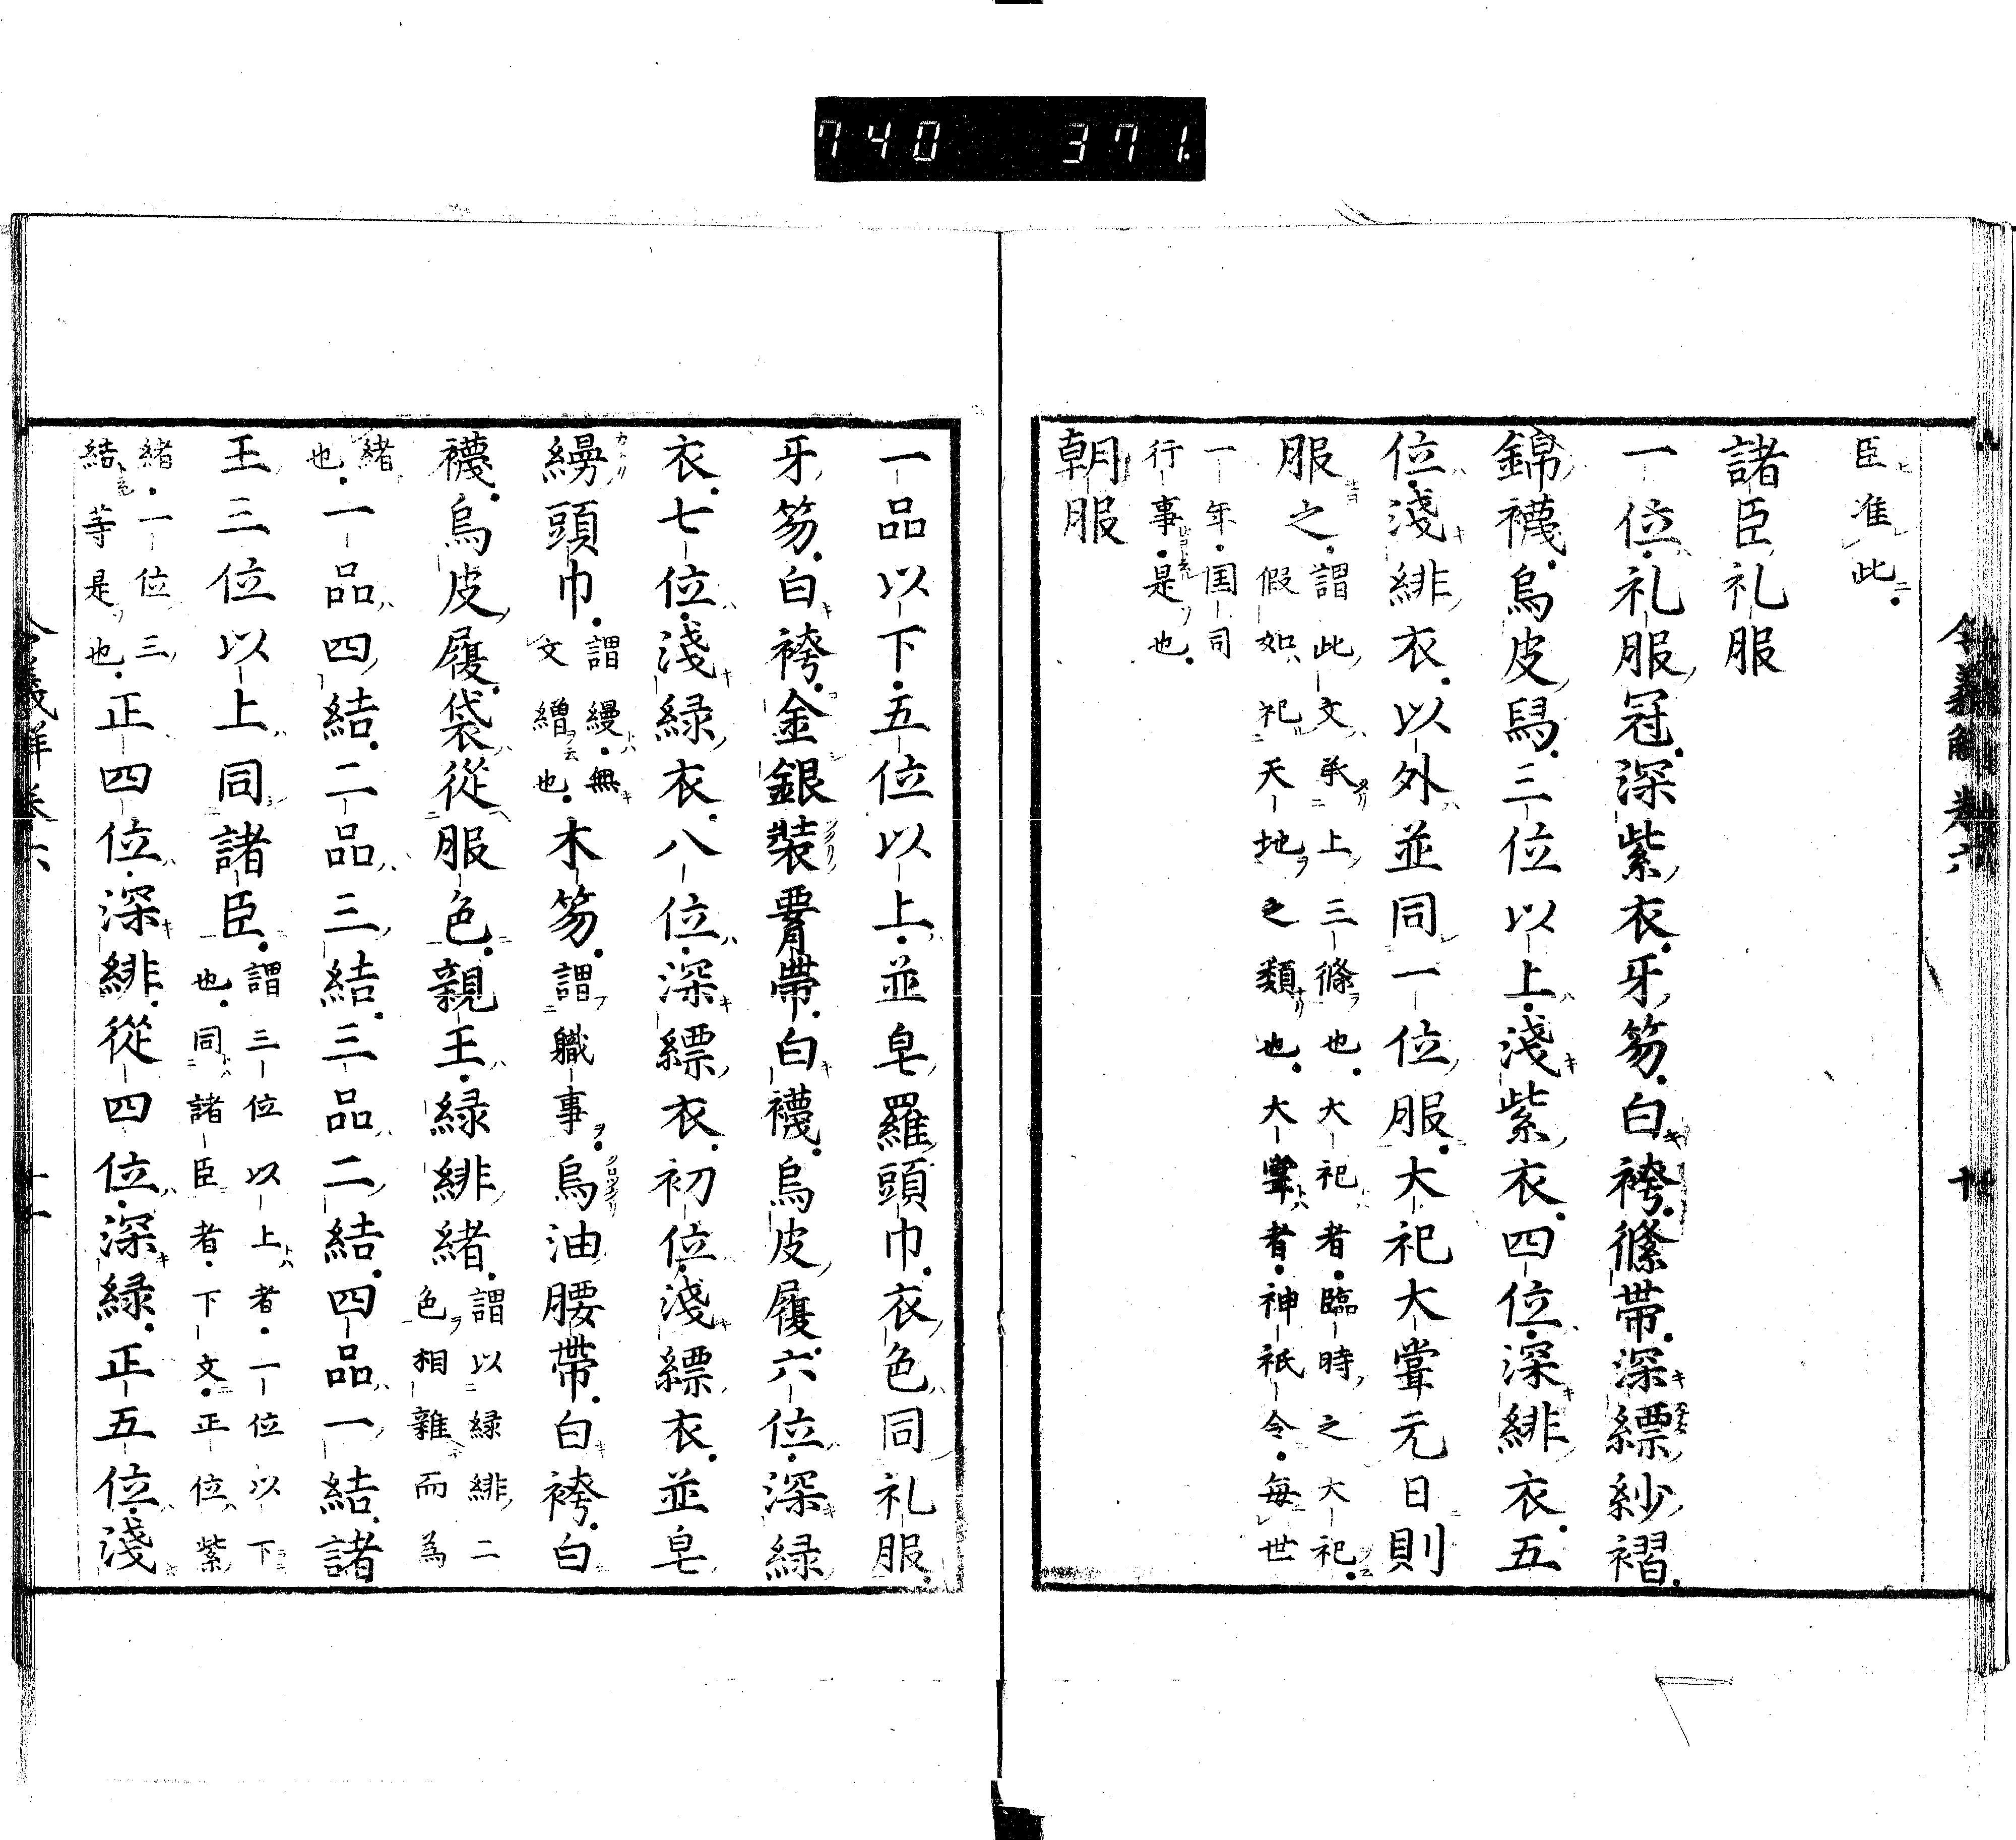 740 371.
令義解卷六 十
臣准此
諸臣礼服
一位礼服冠深紫衣牙笏白袴絛帶深縹紗褶
錦襪烏皮舃三位以上淺紫衣四位深緋衣五
位淺緋衣以外並同一位服大祀大甞元日則
服之謂此文承上三條也大祀者臨時之大祀
假如祀天地之類也大甞者神祇令毎世
一年国司
行事是也
朝服
一品以下五位以上並皂羅頭巾衣色同礼服
牙笏白袴金銀裝腰帶白襪烏皮履六位深緑
衣七位淺緑衣八位深縹衣初位淺縹衣並皂
縵頭巾謂縵無
文繒也木笏謂職事烏油腰帶白袴白
襪烏皮履袋從服色親王緑緋緒謂以緑緋二
色相雜而為
緒
也一品四結二品三結三品二結四品一結諸
王三位以上同諸臣謂三位以上者一位以下
也同諸臣者下文正位紫
緒一位三
結等是也正四位深緋從四位深緑正五位淺